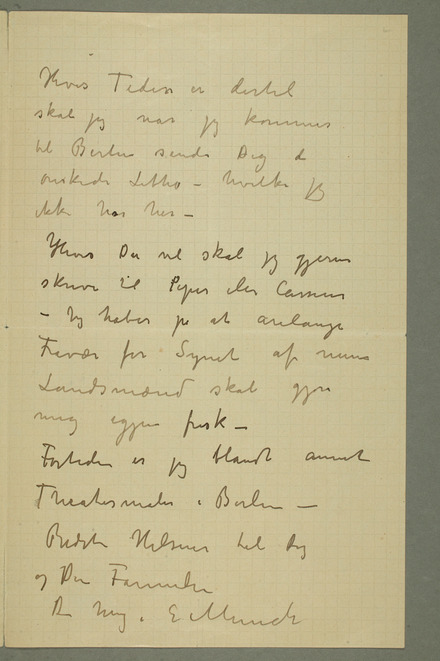 Hvis Tiden er dertil
skal jeg naar jeg kommer
til Berlin sende Dig de
ønskede Litho – hvilke jeg
ikke har her –
Hvis Du vil skal jeg gjerne
skrive til Piper eller Cassirer
– Jeg haber på at
Fravær for Synet af mine
Landsmænd skal gjøre
mig igjen frisk –
Forresten er jeg blandt annet
Theatermaler i Berlin –
Bedste Hilsener til Dig
og Din Familie
Din E Munch